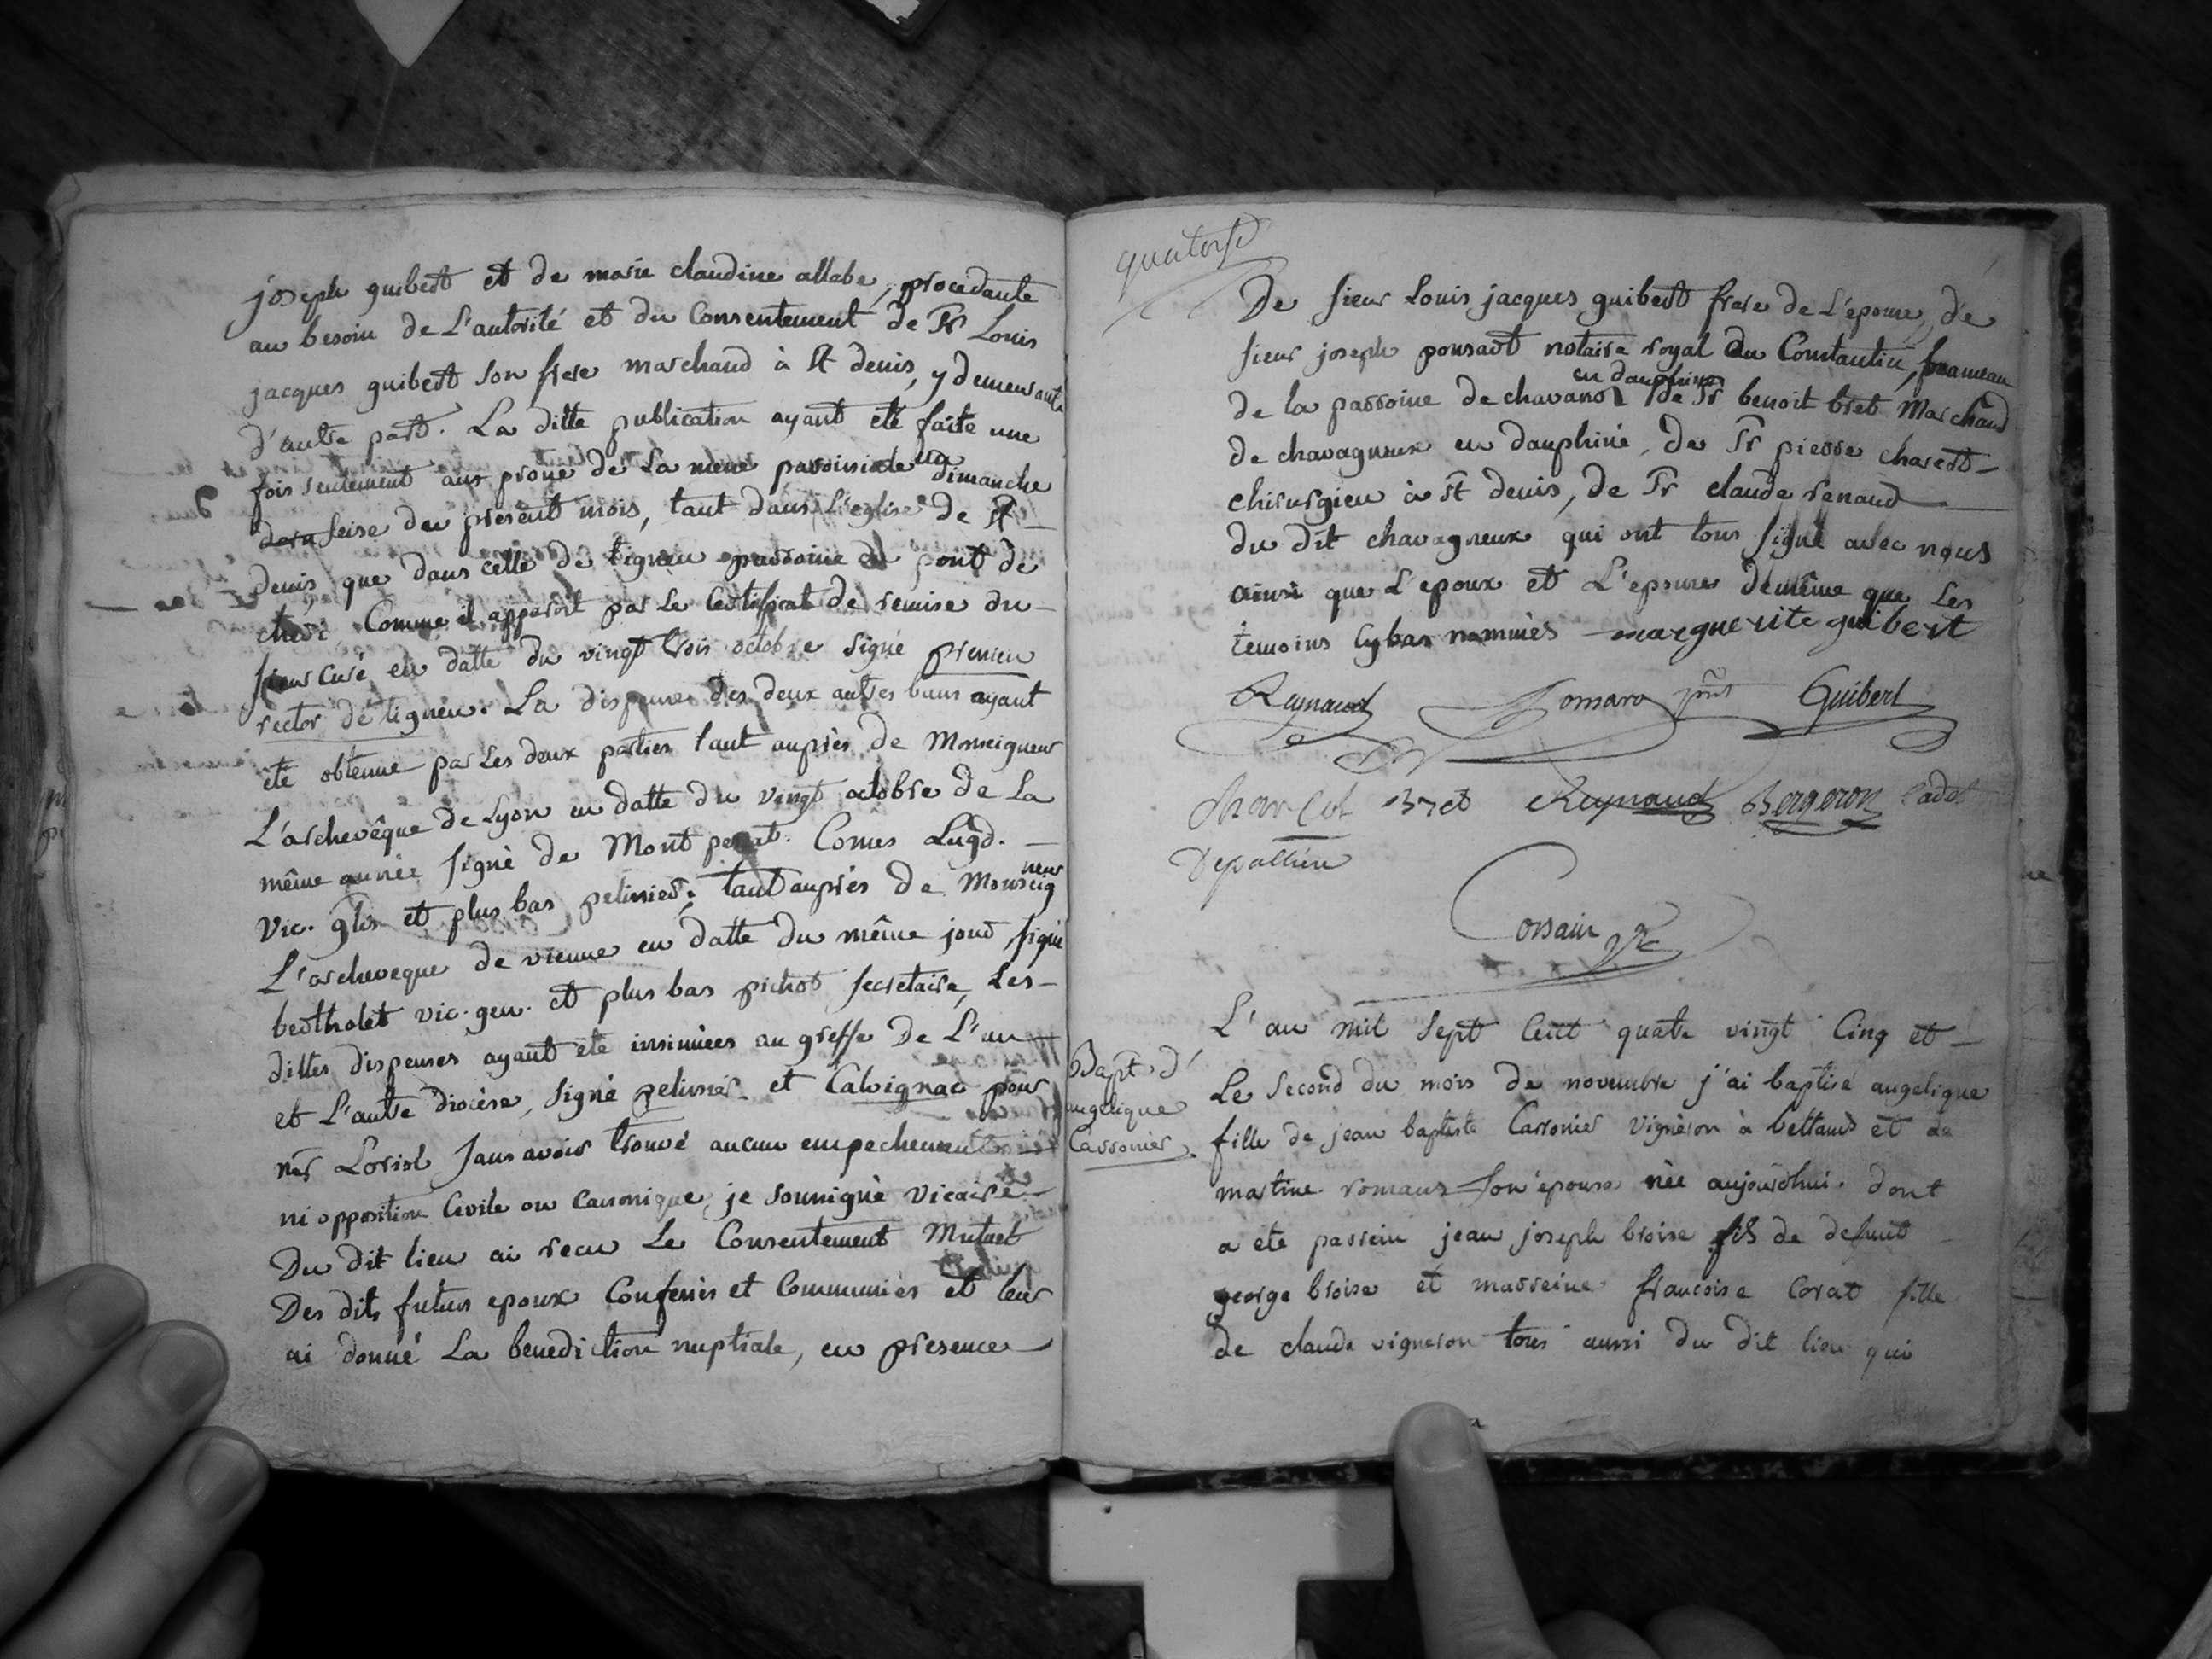 joseph guibert et de marie claudine allabe, procedante
au besoin de L'autorité et du Consentement de Sr Louis
jacques guibert son frere marchand à St denis, y demeurant
d'autre part. La ditte publication ayant été faite une
fois seulement aux prone de La messe paroissiale du dimanche
seise du present mois, tant dans L'eglise de St
denis que dans celle de tignieu parroisse du pont de
cheri Comme il apparoit par Le Certificat de remise du
sieur Curé en datte du vingt trois octobre signé
rector de tignieu. La dispense des deux autres bans ayant
été obtenue par Les deux parties tant auprès de Monseigneur
L'archevêque de Lyon en datte du vingt octobre de La
même année signé de Mont perat. Comes Lugd.
Vic. glis et plus bas pelissier; tant auprès de Monseigneur
L'archeveque de vienne en datte du même jour, signé
bertholet vic. gen. et plus bas pichot secretaire, Les
dittes dispenses ayant été insinuées au greffe De L'un
et L'autre diocèse, signé pelissier et Calvignac pour
mr Loriol sans avoir trouvé aucun empechement
ni opposition Civile ou Canonique, je soussigné vicaire
Du dit lieu ai recu Le Consentement Mutuel
Des dits futurs epoux Confessés et Communiés et leur
ai donné La benediction nuptiale, en presence
quatorse
De sieur Louis jacques guibert frere de L'epouse, de
sieur joseph ponsard notaire royal du Constantin, hameau
de la parroisse de chavanos en dauphiné de Sr benoit bret Marchand
de chavagneux en dauphiné, de Sr pierre charcot
chirurgien à St denis, de Sr claude renaud
du dit chavagneux qui ont tous signé avec nous
ainsi que L'epoux et L'epouse de même que Les
temoins Cybas nommés marguerite guibert
Reynaud Guibert
charcot Bret Reynaud Bergeron Cadet
Depallieu
Corsain
L'an mil sept Cent quatre vingt Cinq et
Bapt d'
angelique
Carronier
Le second du mois de novembre j'ai baptisé angelique
fille de jean baptiste Carronier vigneron à bettans et de
martine romans son epouse née aujourd'hui. dont
a été parrein jean joseph broise fils de defunt
george broise et marreine francoise Corat fille
de claude vigneron tous aussi du dit lieu qui